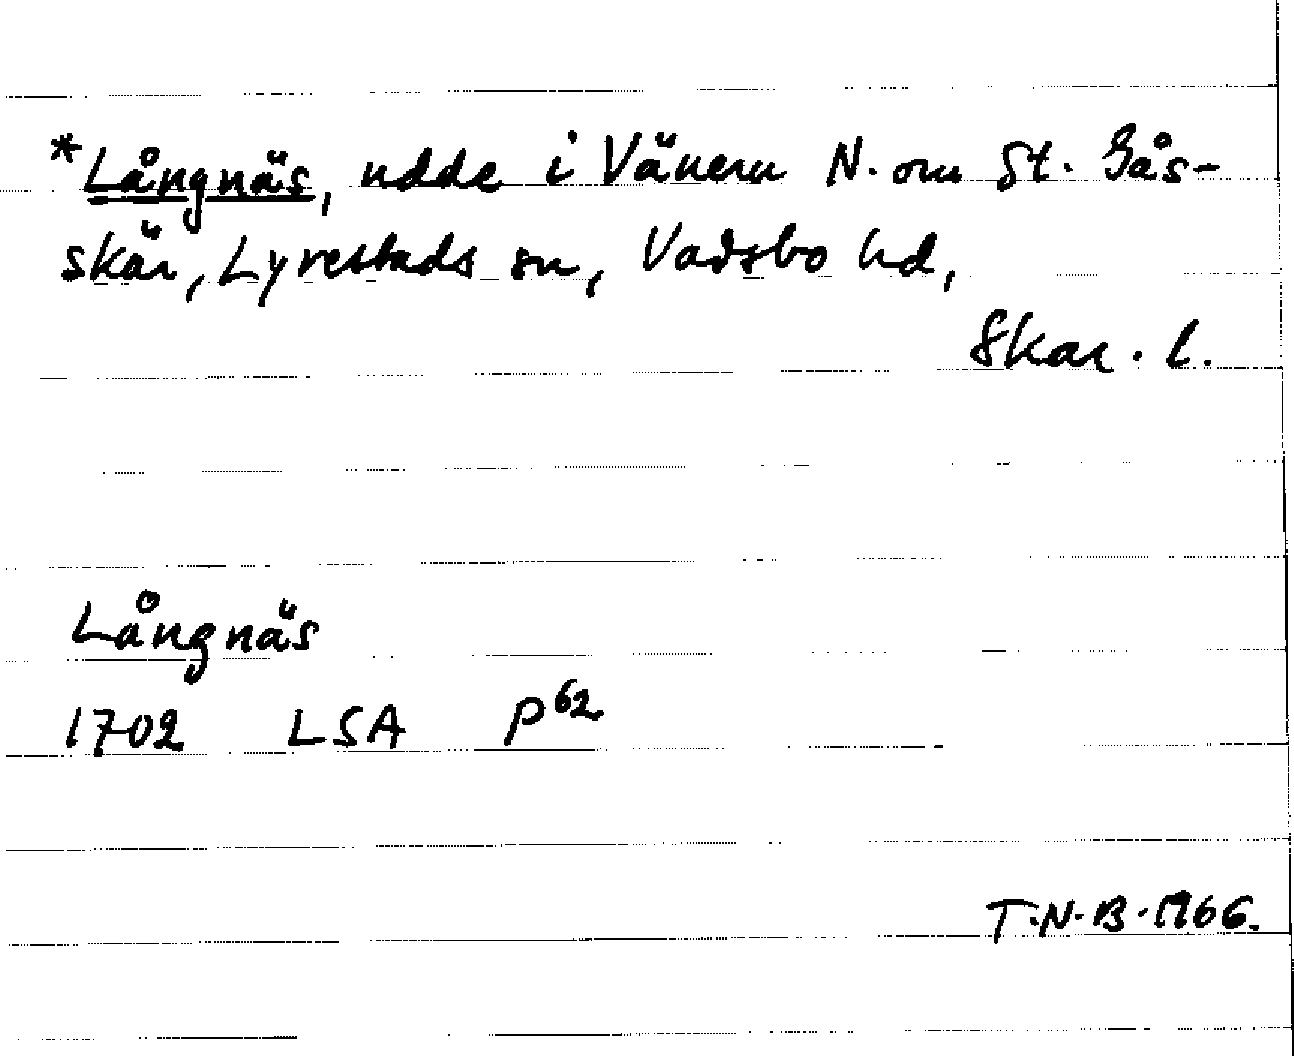 *Långnäs, udde i Vänern N. om St. Gås-
skär, Lyrestads sn, Vadsbo hd,
Skar. l.
Långnäs
1702 LSA P62
T.N.B. 1966.